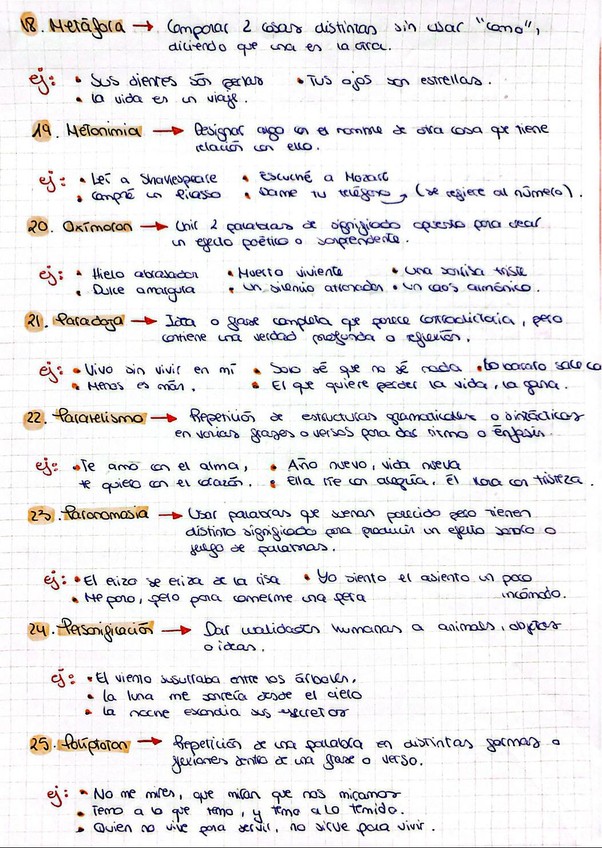 18. Metáfora → Comparar 2 cosas distintas sin usar "como",
diciendo que una es la otra.
ej: • Sus dientes són perlas • Tus ojos son estrellas.
• La vida es un viaje.
19. Metonimia → Designar algo con el nombre de otra cosa que tiene
relación con ello.
ej: • Leí a Shakespeare • Escuché a Mozart
• Compré un Picasso • Dame tu teléfono (se refiere al número).
20. Oxímoron → Unir 2 palabras de significado opuesto para crear
un efecto poético o sorprendente.
ej: • Hielo abrasador • Muerto viviente • Una sonrisa triste
• Dulce amargura • Un silencio atronador • Un caos armónico.
21. Paradoja → Idea o frase completa que parece contradictoria, pero
contiene una verdad profunda o reflexión.
ej: • Vivo sin vivir en mí • Solo sé que no sé nada • Lo barato sale ca
• Menos es más. • El que quiere perder la vida, la gana.
22. Paralelismo → Repetición de estructuras gramaticales o sintácticas
en varias frases o versos para dar ritmo o énfasis.
ej: • Te amo con el alma, • Año nuevo, vida nueva
te quiero con el corazón. • Ella ríe con alegría, él llora con tristeza.
23. Paronomasia → Usar palabras que suenan parecido pero tienen
distinto significado para producir un efecto sonoro o
juego de palabras.
ej: • El erizo se eriza de la risa • Yo siento el asiento un poco
• Me paro, pero para comerme una pera incómodo.
24. Personificación → Dar cualidades humanas a animales, objetos
o ideas.
ej: • El viento susurraba entre los árboles,
• La luna me sonreía desde el cielo
• La noche escondía sus secretos
25. Políptoton → Repetición de una palabra en distintas formas o
flexiones dentro de una frase o verso.
ej: • No me mires, que miran que nos miramos
• Temo a lo que temo, y temo a lo temido.
• Quien no vive para servir, no sirve para vivir.